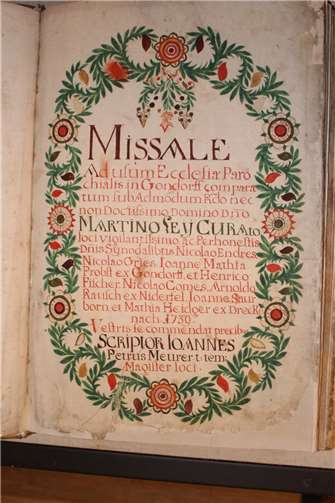 MISSALE
Ad usum Ecclesiæ Paro
chialis in Gondorff compara
tum sub Admodum Rdo nec
non Doctissimo Domino Dno
MARTINO LEY CURATO
loci vigilantissimo, ac Perhonestis
Dnis Synodalibus Nicolao Endres
Nicolao Gries, Ioanne Mathia
Probst ex Gondorff, et Henrico
Fischer, Nicolao Gomes, Arnoldo
Rausch ex Niderstel, Ioanne Saur
born, et Mathia Heidger ex Dreck
nach 1759
Vestris se commendat precibus
SCRIPTOR IOANNES
Petrus Meurer t. tem:
Magister loci.